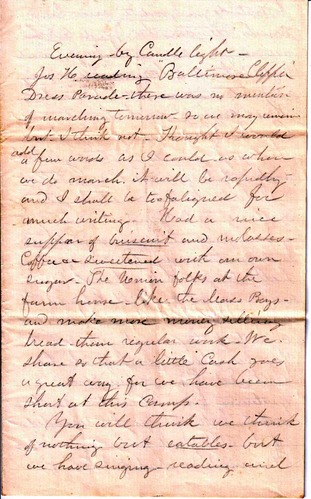 Evening - by Candle light -
Jos H. reading "Baltimore Clipper
Dress Parade - there was no mention
of marching tomorrow so we may
but I think not - Thought I would
add
a few words as I could as when
we do march it will be rapidly -
and I shall be too fatigued for
much writing. Had a nice
supper of and molasses -
Coffee sweetened with our own
sugar - The Union folks at the
farm house - like the Mass Boys -
and make more money selling
bread than regular work - We
share so that a little Cash goes
a great way for we have been
short at this Camp.
You will think we think
of nothing but eatables - but
we have singing - reading and